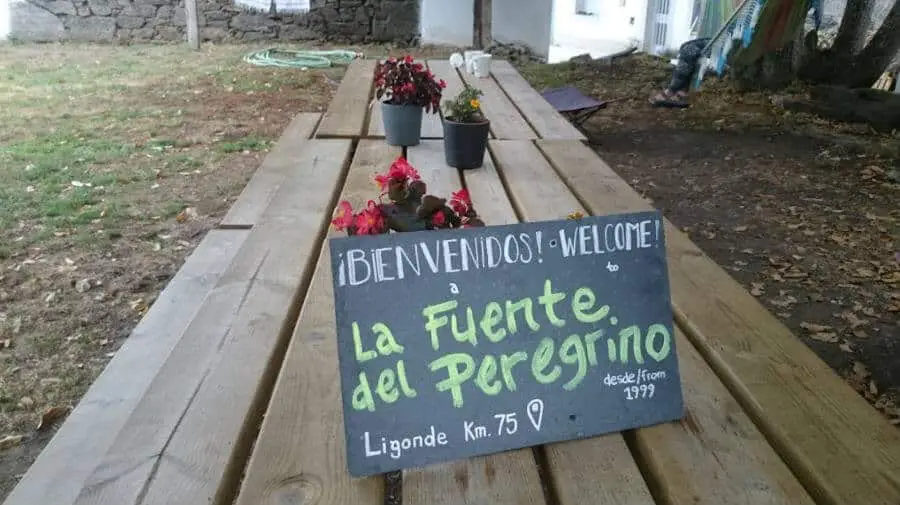 ¡BIENVENIDOS! · WELCOME!
a to
La Fuente
del Peregrino
desde/from
1999
Ligonde Km. 75